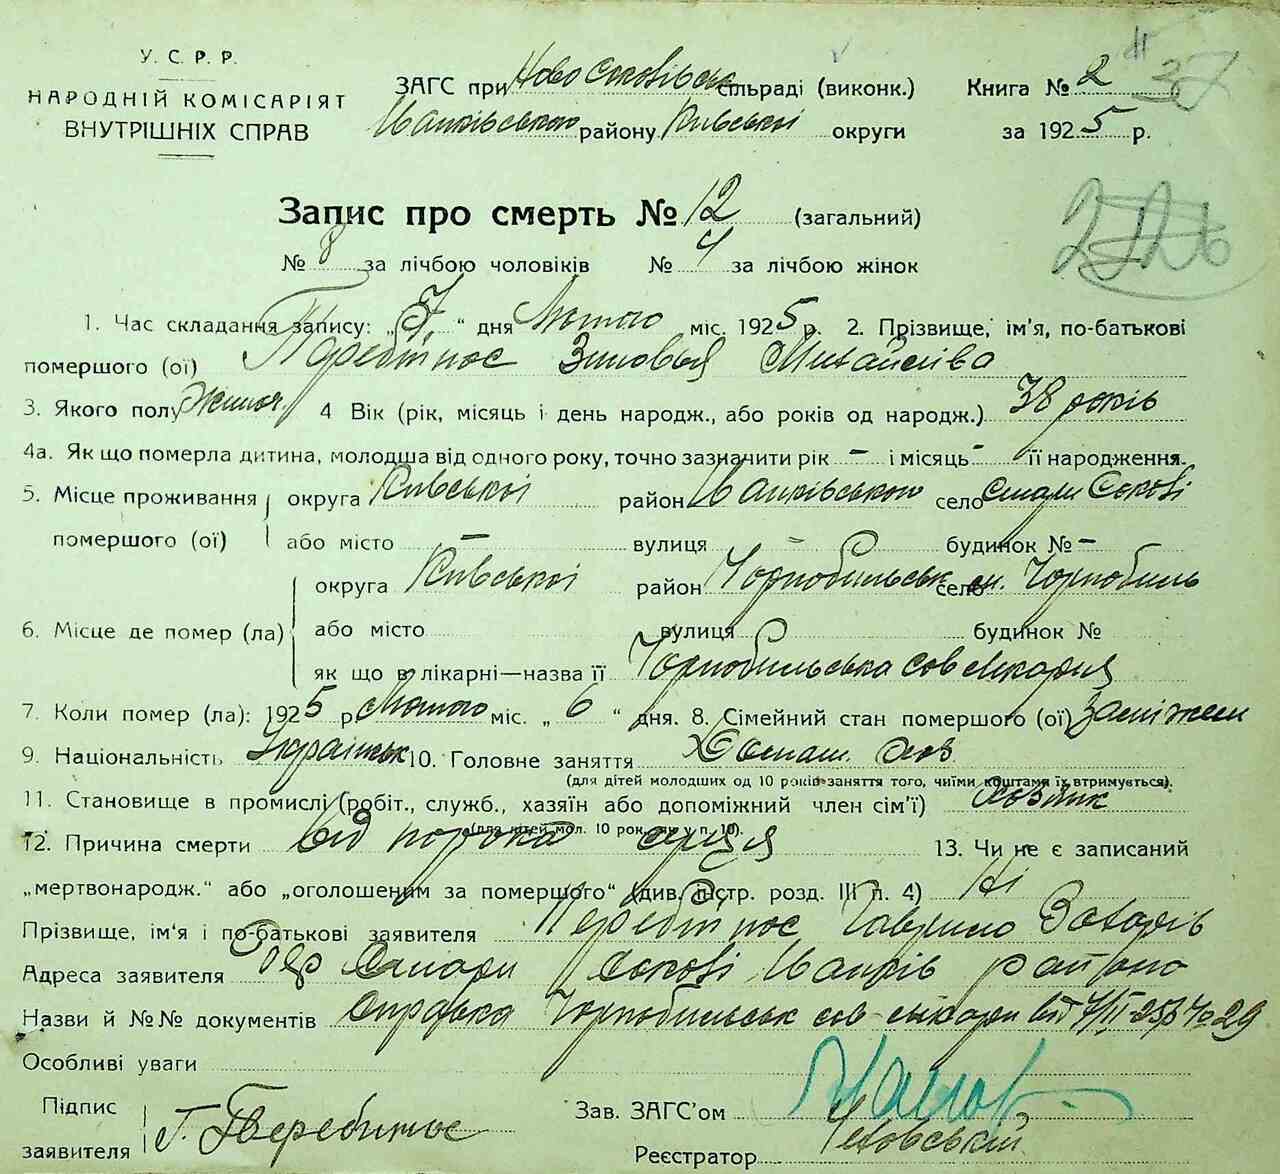 У. С. Р. Р.
НАРОДНІЙ КОМІСАРІЯТ
ВНУТРІШНІХ СПРАВ
ЗАГС при Ново Соковівськ сільраді (виконк.)
Іванківського району Київської округи
Книга № 2 37
за 1925 р.
Запис про смерть № 12 (загальний)
№ 8 за лічбою чоловіків № 4 за лічбою жінок
1. Час складання запису: „7“ дня Лютого міс. 1925 р. 2. Прізвище, ім'я, по-батькові
помершого (ої) Перебийнос Зиновья Михайлівна
3. Якого полу Жіноч. 4 Вік (рік, місяць і день народж., або років од народж.) 38 років
4а. Як що померла дитина, молодша від одного року, точно зазначити рік – і місяць – її народження.
5. Місце проживання помершого (ої) округа Київської район Іванківського село Стари Сокові
або місто – вулиця будинок № –
6. Місце де помер (ла) округа Київської район Чорнобильськ село м. Чорнобиль
або місто вулиця будинок №
як що в лікарні—назва її Чорнобильська сов лікарня
7. Коли помер (ла): 1925 р Лютого міс. „6“ дня. 8. Сімейний стан помершого (ої) Заміжем
9. Національність Українськ 10. Головне заняття Домаш. хоз.
(для дітей молодших од 10 років-заняття того, чиїми коштами їх втримується).
11. Становище в промислі (робіт., служб., хазяїн або допоміжний член сім'ї)
(для дітей мол. 10 рок. як у п. 10).
12. Причина смерти від порока серця 13. Чи не є записаний
„мертвонародж.“ або „оголошеним за помершого“ (див. інстр. розд. III п. 4) Ні
Прізвище, ім'я і по-батькові заявителя Перебийнос Гаврило Захарів
Адреса заявителя Стари Сокові Іванків району
Назви й №№ документів Справка Чорнобильськ сов лікарн від 7/II-25р № 29
Особливі уваги
Підпис заявителя Г. Перебийнос
Зав. ЗАГС'ом
Реєстратор